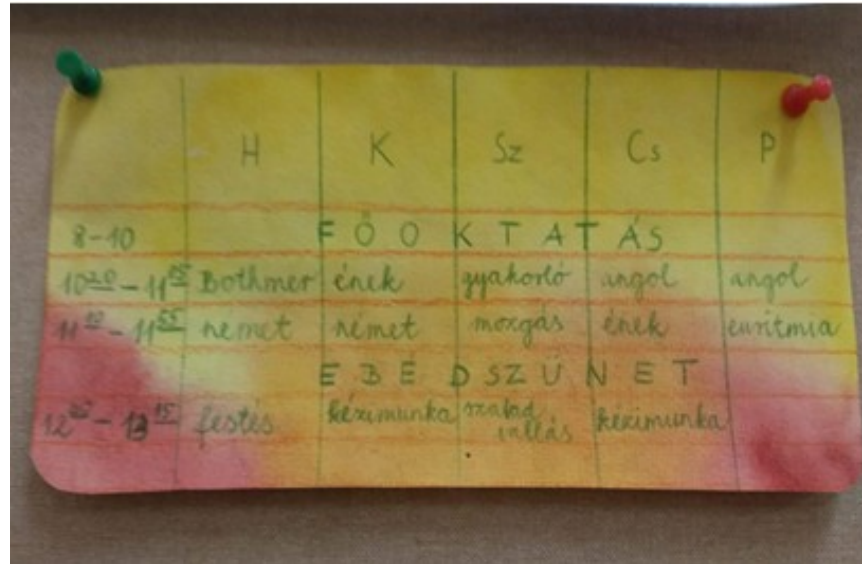 H K Sz Cs P
8-10 FŐOKTATÁS
10 20 - 11 05 Bothmer ének gyakorló angol angol
11 10 - 11 55 német német mozgás ének euritmia
EBÉDSZÜNET
13 15 festés kézimunka szabad kézimunka
vallás